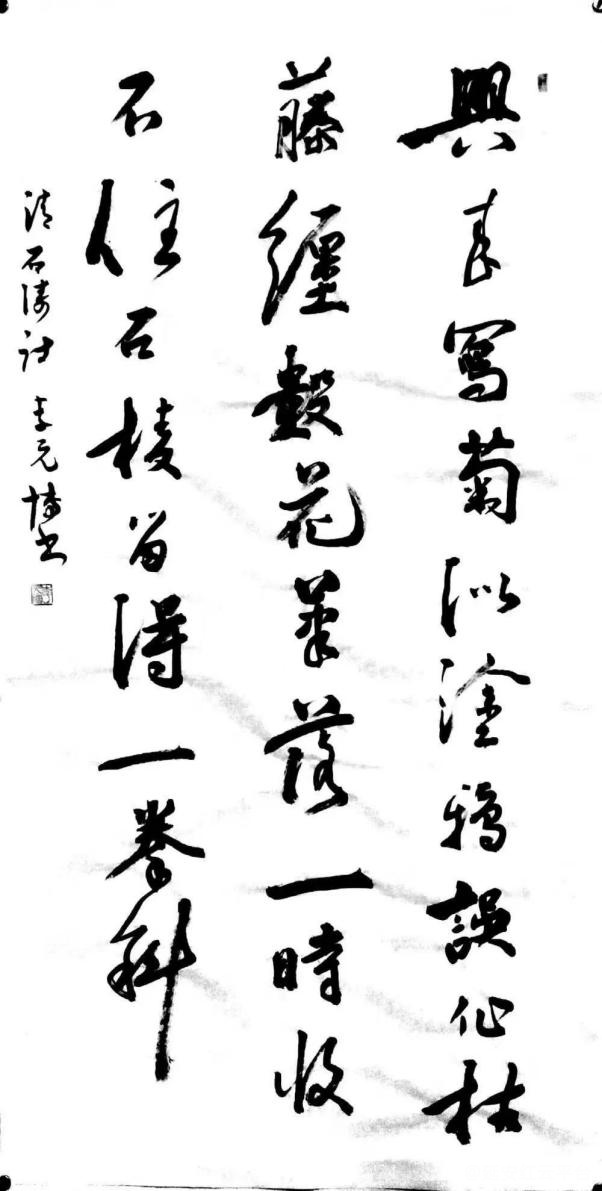 興来寫菊似塗鴉誤作枯
藤纏數花筆落一時收
不住石棱留得一拳斜
清石濤詩 李元博书